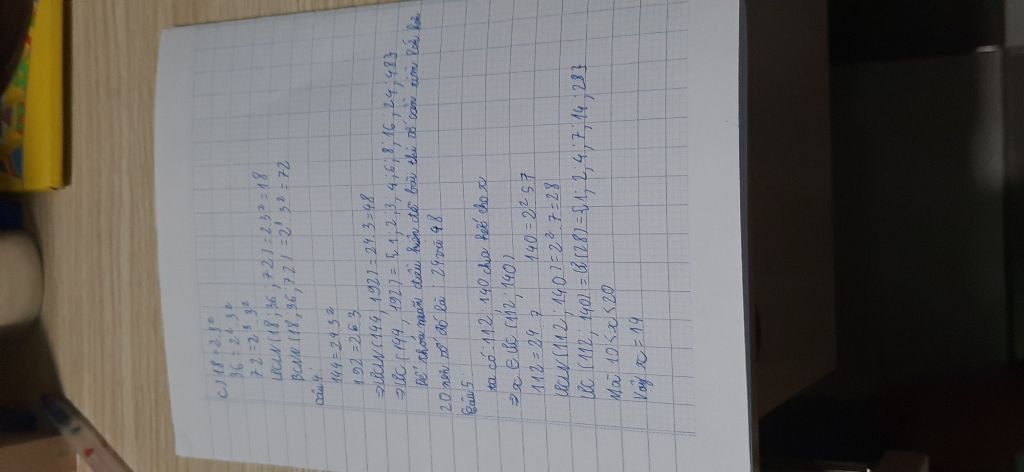 c) 18 = 2.3²
36 = 2² 3²
72 = 2³ 3²
ƯCLN (18 ; 36 ; 72) = 2 3² = 18
BCNN (18 ; 36, 72) = 2³ 3² = 72
câu 4:
144 = 2⁴ 3²
192 = 2⁶ 3
⇒ ƯCLN (144, 192) = 2⁴.3 = 48
⇒ ƯC (144, 192) = {1, 2, 3, 4, 6; 8, 16; 24; 48}
Để thỏa mãn điều kiện đề bài thì số cần tìm phải
20 nên số đó là: 24 và 48
Câu 5:
ta có: 112 : 140 chia hết cho x
⇒ x ∈ ƯC (112; 140)
112 = 2⁴ 7 140 = 2² 5 7
ƯCLN (112; 140) = 2².7 = 28
ƯC (112; 140) = Ư(28) = {1; 2; 4; 7; 14; 28}
Mà 10 < x < 20
Vậy x = 14